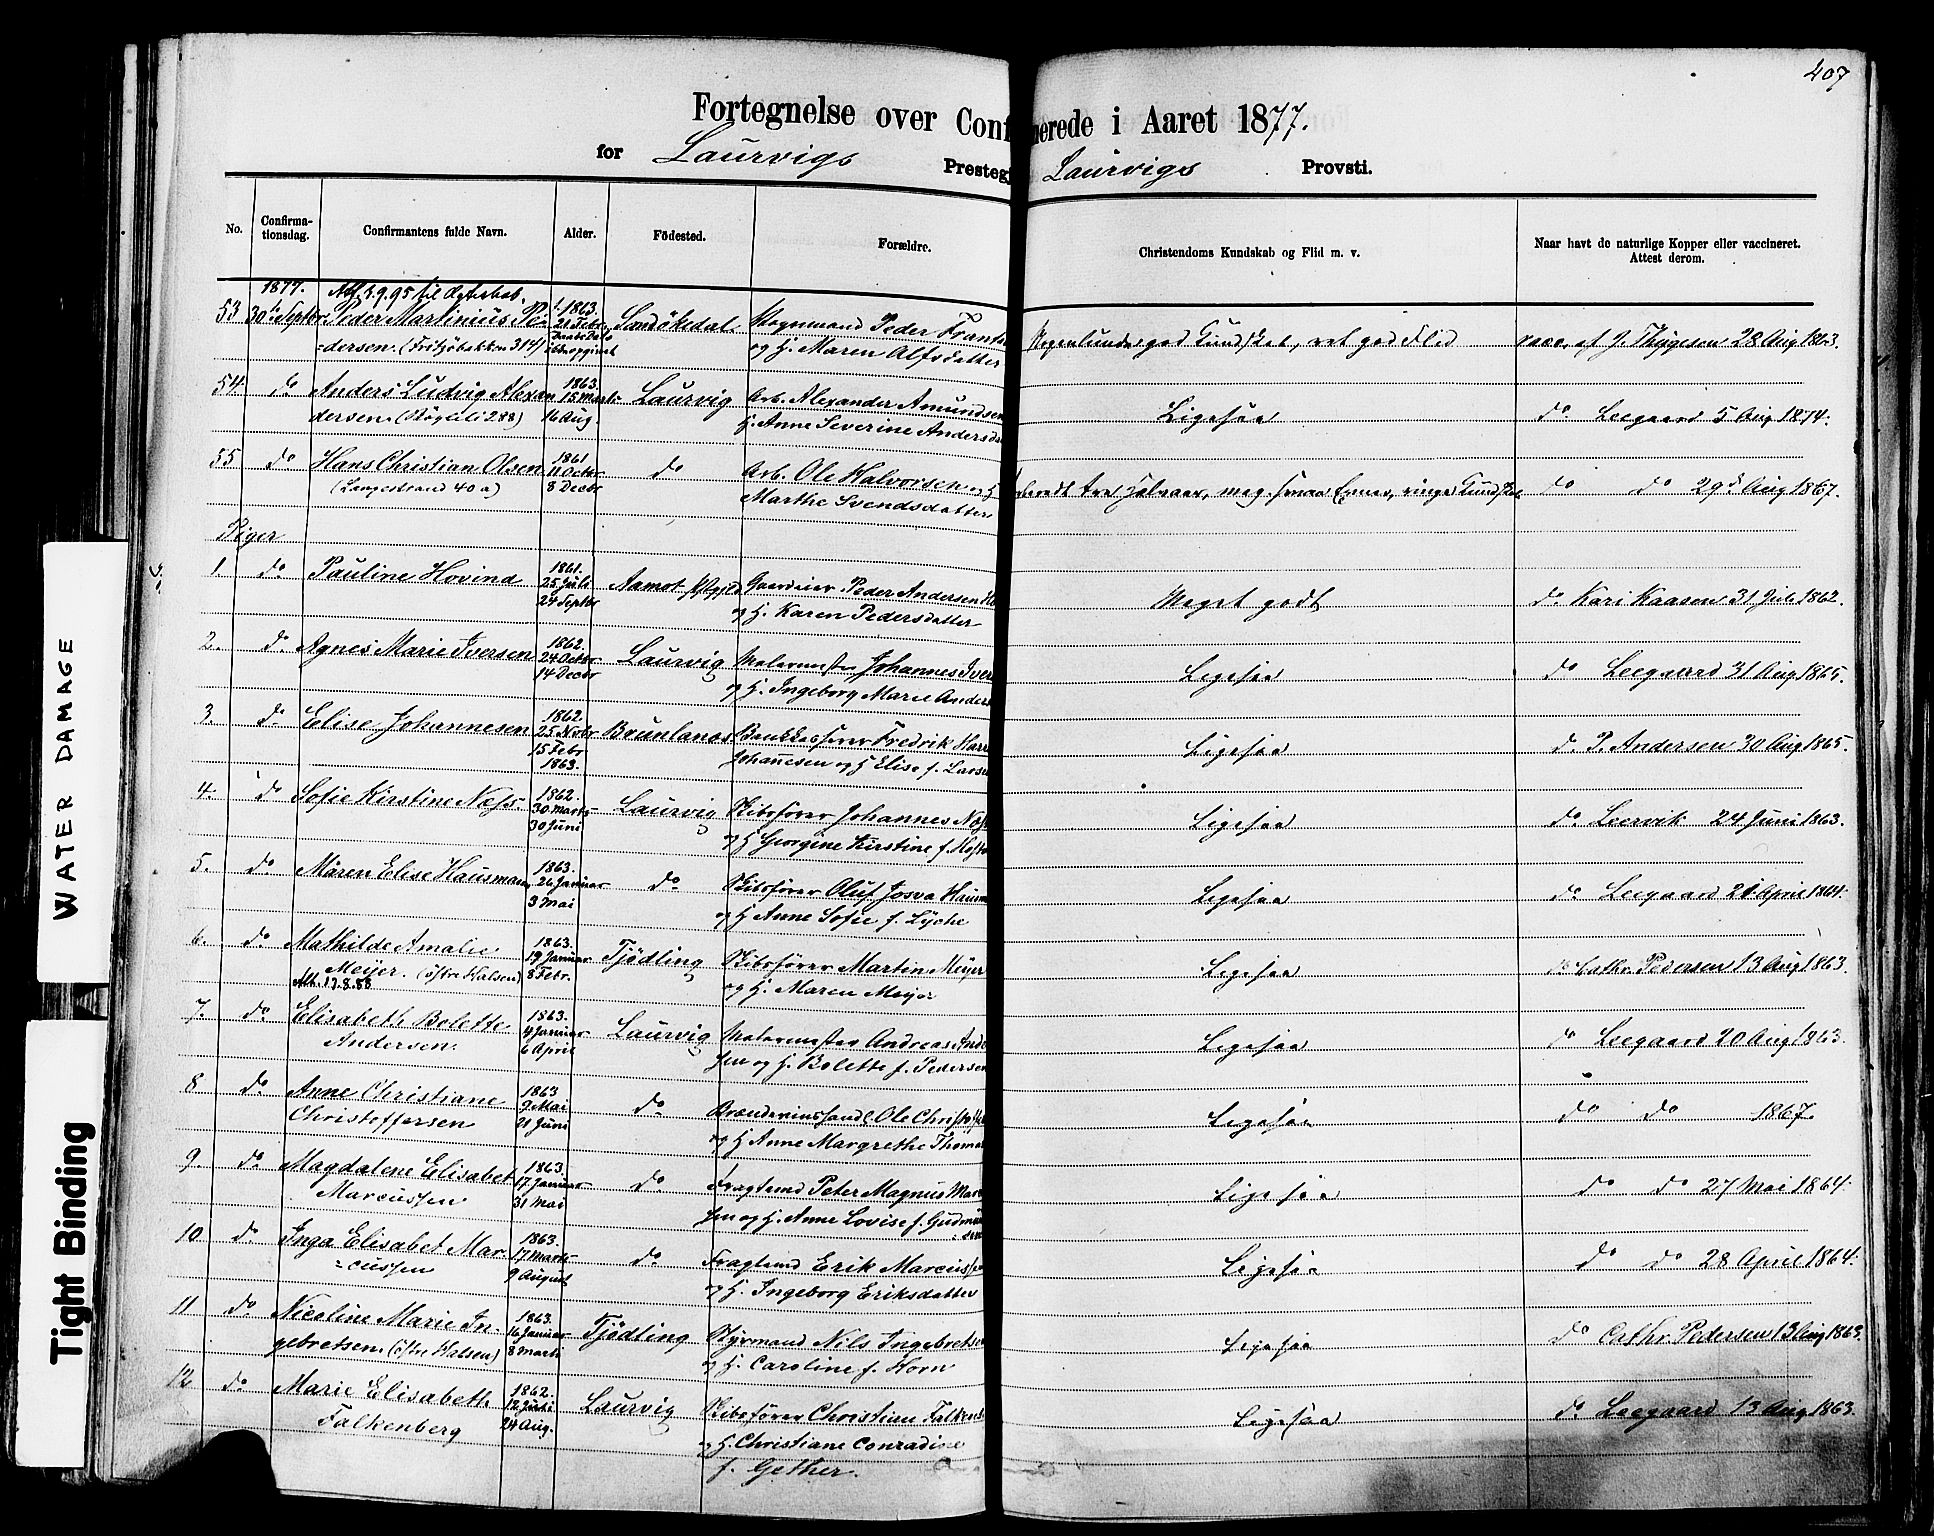 407
Fortegnelse over Conf nerede i Aaret 1877.
for Laurvigs Prestegj Laurvigs Provsti.
No.
Confirma-
tionsdag.
Confirmantens fulde Navn.
Alder.
Födested.
Forældre.
Christendoms Kundskab og Flid m. v.
Naar havt de naturlige Kopper eller vaccineret.
Attest derom.
1877. 2.9.95 til
53 30te Septbr Peder Martinius Pe- 1863. 21 Febr Sandökedal Peder Frants god Kundskab, ret god Flid vacc. af J. Thygesen 28 Aug 1863.
=dersen. (Fritzöbakken 314) og H. Maren Alfsdatter
54 do Anders Ludvig Alexan 1863. 15 Marts Laurvig Arb. Alexander Amundsen Ligesaa do Leegaard 5 Aug 1874.
dersen. (288) 16 Aug. H. Anne Severine Andersda
55 do Hans Christian Olsen 1861 11 Octbr do Arb. Ole Halvorsen og H ringe Kundskab do do 29de Aug 1867.
(Langestrand 40a) 8 Decbr Marthe Svendsdatter
Piger
1. do Pauline Hovind 1861. 25 Juli Aamot Gaardeier Peder Andersen Ho Meget godt do Kari Kaasen 31 Juli 1862.
24 Septbr og H. Karen Pedersdatter
2. do Agnes Marie Iversen 1862. 24 Octbr Laurvig Malermester Johannes Iver Ligesaa do Leegaard 31 Aug 1865.
14 Decbr og H. Ingeborg Marie Anders
3. do Elise Johannesen 1862. 25 Novbr Brunlanes Fredrik Ligesaa do P. Andersen 30 Aug 1865.
15 Febr 1863. Johannesen og H Elise f. Larsen
4. do Sofie Kirstine Næss 1862. 30 Marts Laurvig Skibsfører Johannes Næss Ligesaa do Leervik 24 Juni 1863.
30 Juni og H Georgine Kirstine f.
5. do Maren Elise Hausmann 1863. 26 Januar do Skibsfører Oluf Josva Hausm Ligesaa do Leegaard 21 April 1864.
3 Mai og H Anne Sofie f. Lyche
6. do Mathilde Amalie 1863. 19 Januar Tjödling Skibsfører Martin Meyer Ligesaa do Cathr. Pedersen 13 Aug 1863.
Meijer. (östre Halsen) 8 Febr. og H. Maren Meijer
Att. 17.8.88
7. do Elisabeth Bolette 1863. 4 Januar Laurvig Malermester Andreas Ande Ligesaa do Leegaard 20 Aug 1863.
Andersen. 6 April sen og H. Bolette f. Pedersen
8 do Anne Christiane 1863 9 Mai do Ole Christoffe Ligesaa do do 1867.
Christoffersen 21 Juni og H Anne Margrethe Thomas
9. do Magdalene Elisabet 1863. 17 Januar do Fragtmd Peter Magnus Marc Ligesaa do do 27 Mai 1864.
Marcussen 31 Mai sen og H. Anne Lovise f. Gudmun
=sen
10 do Inga Elisabet Mar- 1863. 17 Marts do Fragtmd Erik Marcussen Ligesaa do do 28 April 1864.
=cussen 9 August og H. Ingeborg Eriksdatter
11 do Nicoline Marie In 1863. 16 Januar Tjödling Styrmand Nils Ingebretsen Ligesaa do Cathr. Pedersen 13 Aug 1863.
gebretsen. (östre Halsen) 8 Marts og H. Caroline f. Horn
12 do Marie Elisabeth 1862. 12 Juli Laurvig Skibsfører Christian Falkenb Ligesaa do Leegaard 13 Aug 1863.
Falkenberg 24 Aug. og H. Christiane Conradine
f. Gether.
WATER DAMAGE
Tight Binding